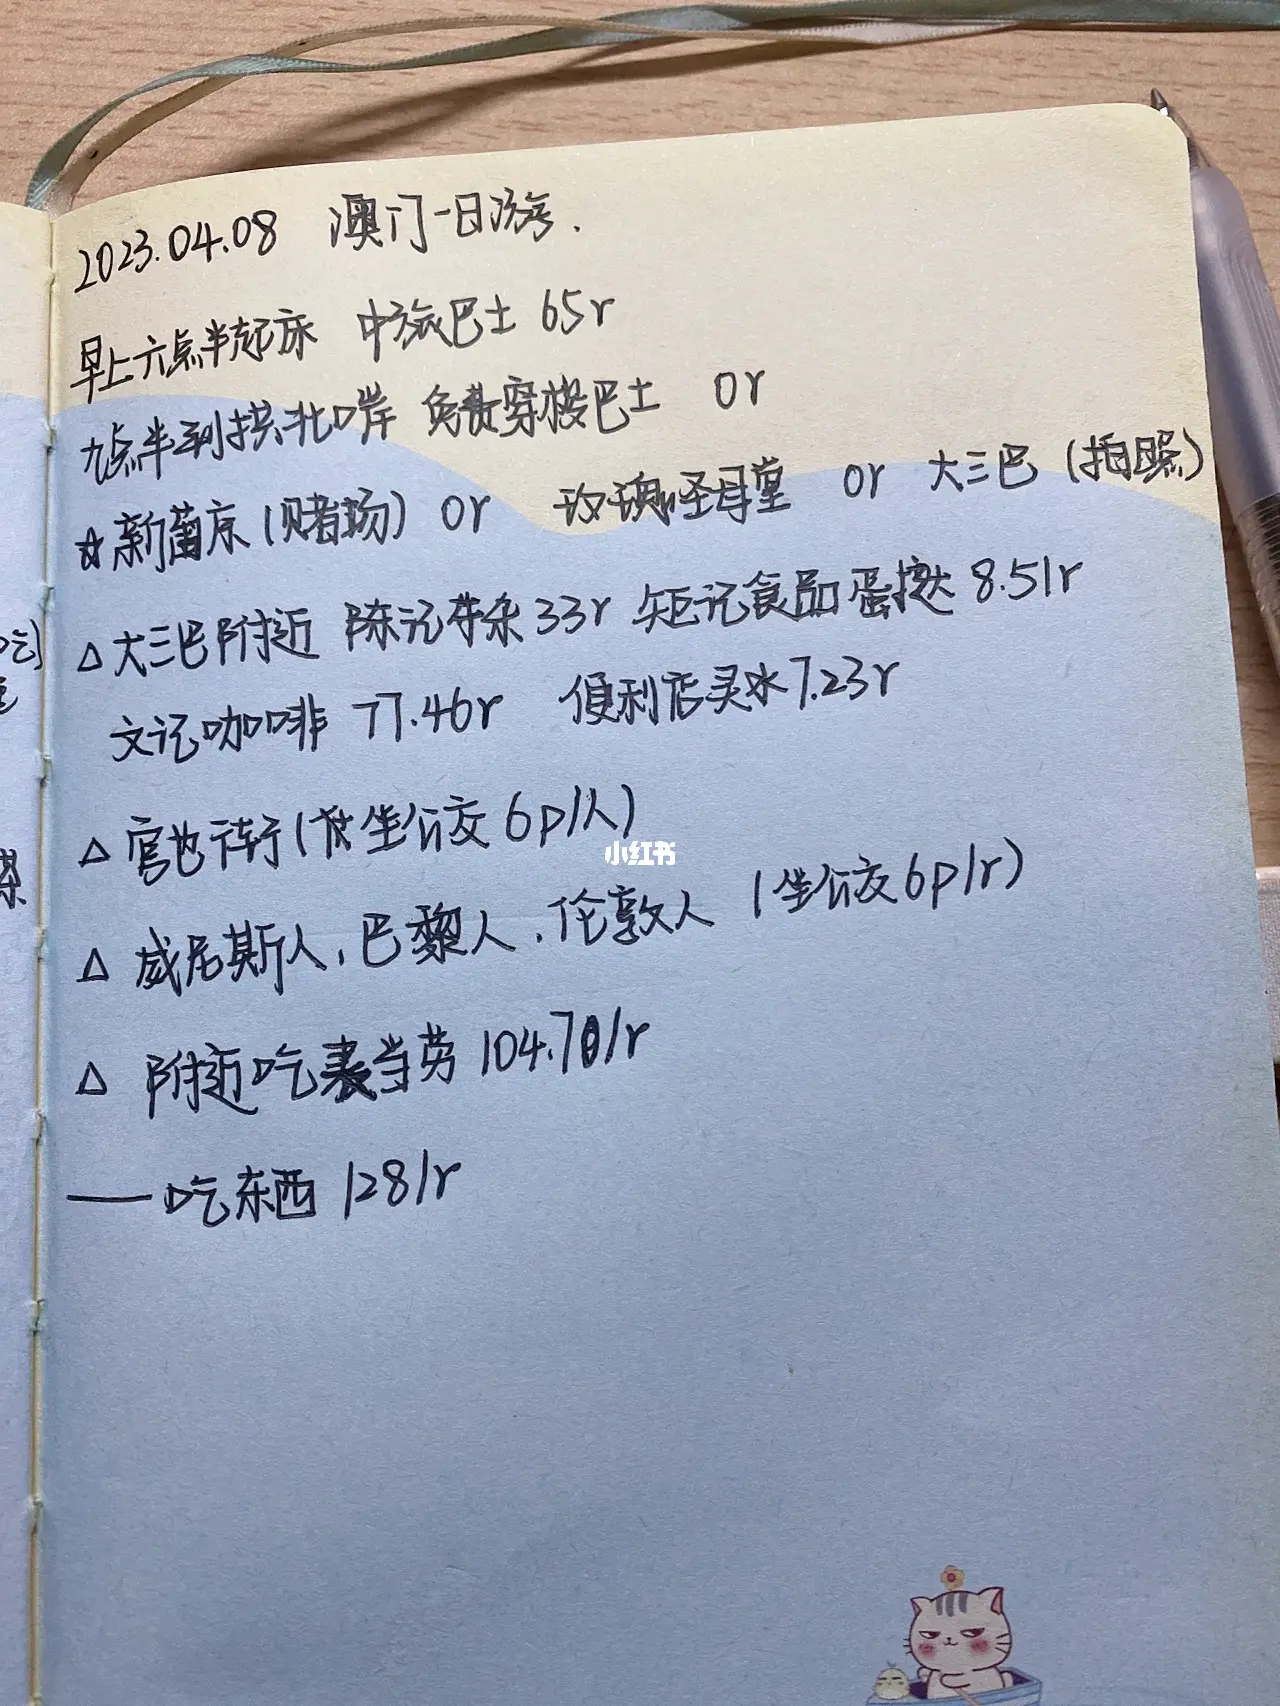 2023.04.08 澳门一日游.
早上六点半起床 中旅巴士 65r
九点半到拱北口岸 免费穿梭巴士 or
☆新葡京(赌场) or 玫瑰圣母堂 or 大三巴(拍照)
△大三巴附近 陈记牛杂33r 矩记食品蛋挞8.51r
文记咖啡 77.46r 便利店灵水7.23r
△官也街(坐公交6p/人)
小红书
△威尼斯人,巴黎人,伦敦人(坐公交6p/r)
△附近吃麦当劳 104.7/r
——吃东西 128/r